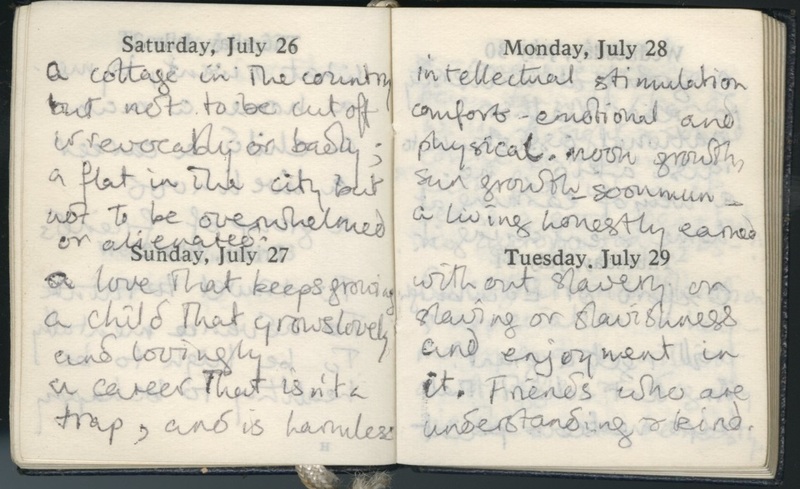 Saturday, July 26
a cottage in the country
but not to be cut off
irrevocably or badly;
a flat in the city but
not to be overwhelmed
or alienated.
Sunday, July 27
a love that keeps growing
a child that grows lovely
and lovingly
a career that isn't a
trap, and is harmless
Monday, July 28
intellectual stimulation
comforts - emotional and
physical. moon growth,
sun growth - soonmun -
a living honestly earned
Tuesday, July 29
without slavery or
slaving or slavishness
and enjoyment in
it. Friends who are
understanding & kind.